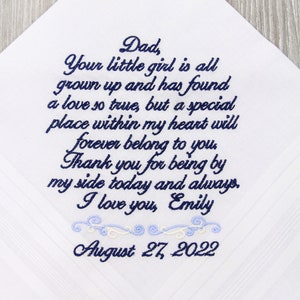 Dad,
Your little girl is all
grown up and has found
a love so true, but a special
place within my heart will
forever belong to you.
Thank you for being by
my side today and always.
I love you, Emily
August 27, 2022